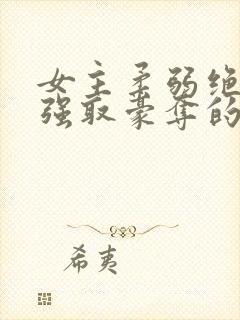 女主柔弱绝
强取豪夺的
希夷